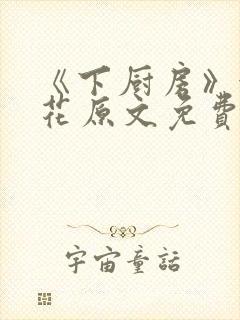 《下厨房》
花原文免費
宇宙童話